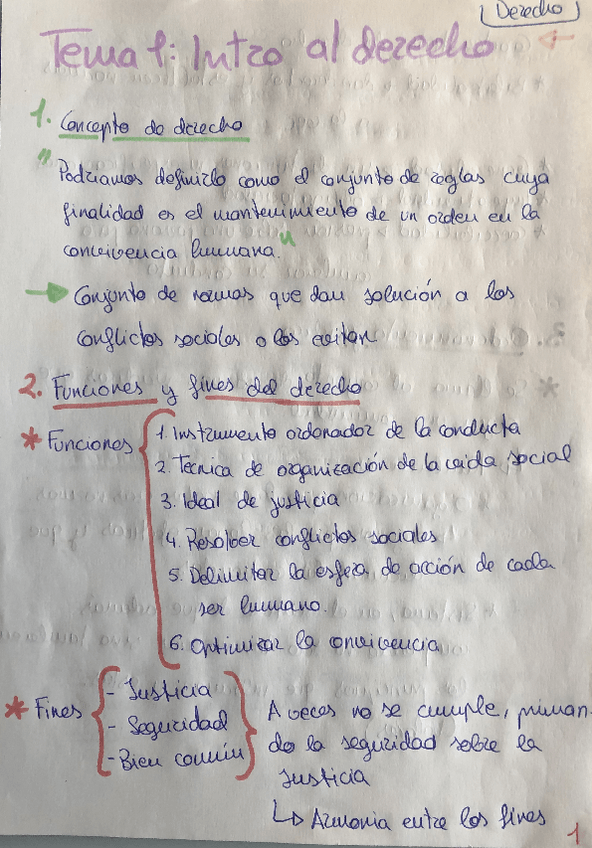 Derecho
Tema 1: Intro al derecho
1. Concepto de derecho
"Podriamos definirlo como el conjunto de reglas cuya
finalidad es el mantenimiento de un orden en la
convivencia humana."
→ Conjunto de normas que dan solución a los
conflictos sociales o los evitan
2. Funciones y fines del derecho
* Funciones
1. Instrumento ordenador de la conducta
2. Técnica de organización de la vida social
3. Ideal de justicia
4. Resolver conflictos sociales
5. Delimitar la esfera de acción de cada
ser humano.
6. Optimizar la convivencia
* Fines
- Justicia
- Seguridad
- Bien común
A veces no se cumple, priman-
do la seguridad sobre la
Justicia
↳ Armonia entre los fines
1